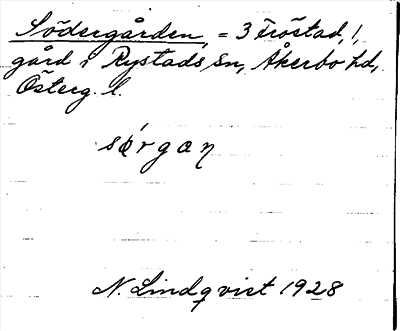 Södergården, = 3 Frostad, 1,
gård i Rystads sn, Åkerbo hd,
Österg. l.
sǿrgaŋ
N. Lindqvist 1928